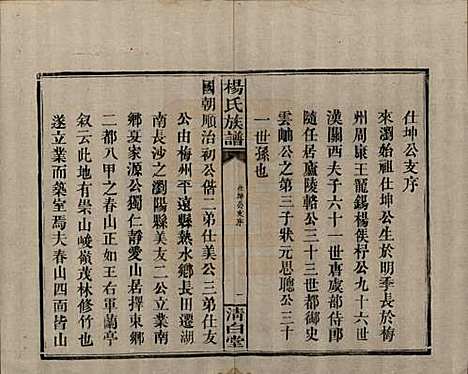 仕坤公支序
來瀏始祖仕坤公生於明季長於梅
州周康王龍錫楊侯杼公九十六世
漢關西夫子六十一世唐虞部侍郎
隨任居廬陵輅公三十三世都御史
雲岫公之第三子狀元思聰公三十
一世孫也
楊氏族譜
仕坤公支序
一
清白堂
國朝順治初公偕二弟仕美公三弟仕友
公由梅州平遠縣熱水鄉長田遷湖
南長沙之瀏陽縣美友二公立業南
鄉㕛家源公獨仁靜愛山居擇東鄉
二都八甲之春山正如王右軍蘭亭
叙云此地有崇山峻嶺茂林修竹也
遂立業而築室焉夫春山四面皆山